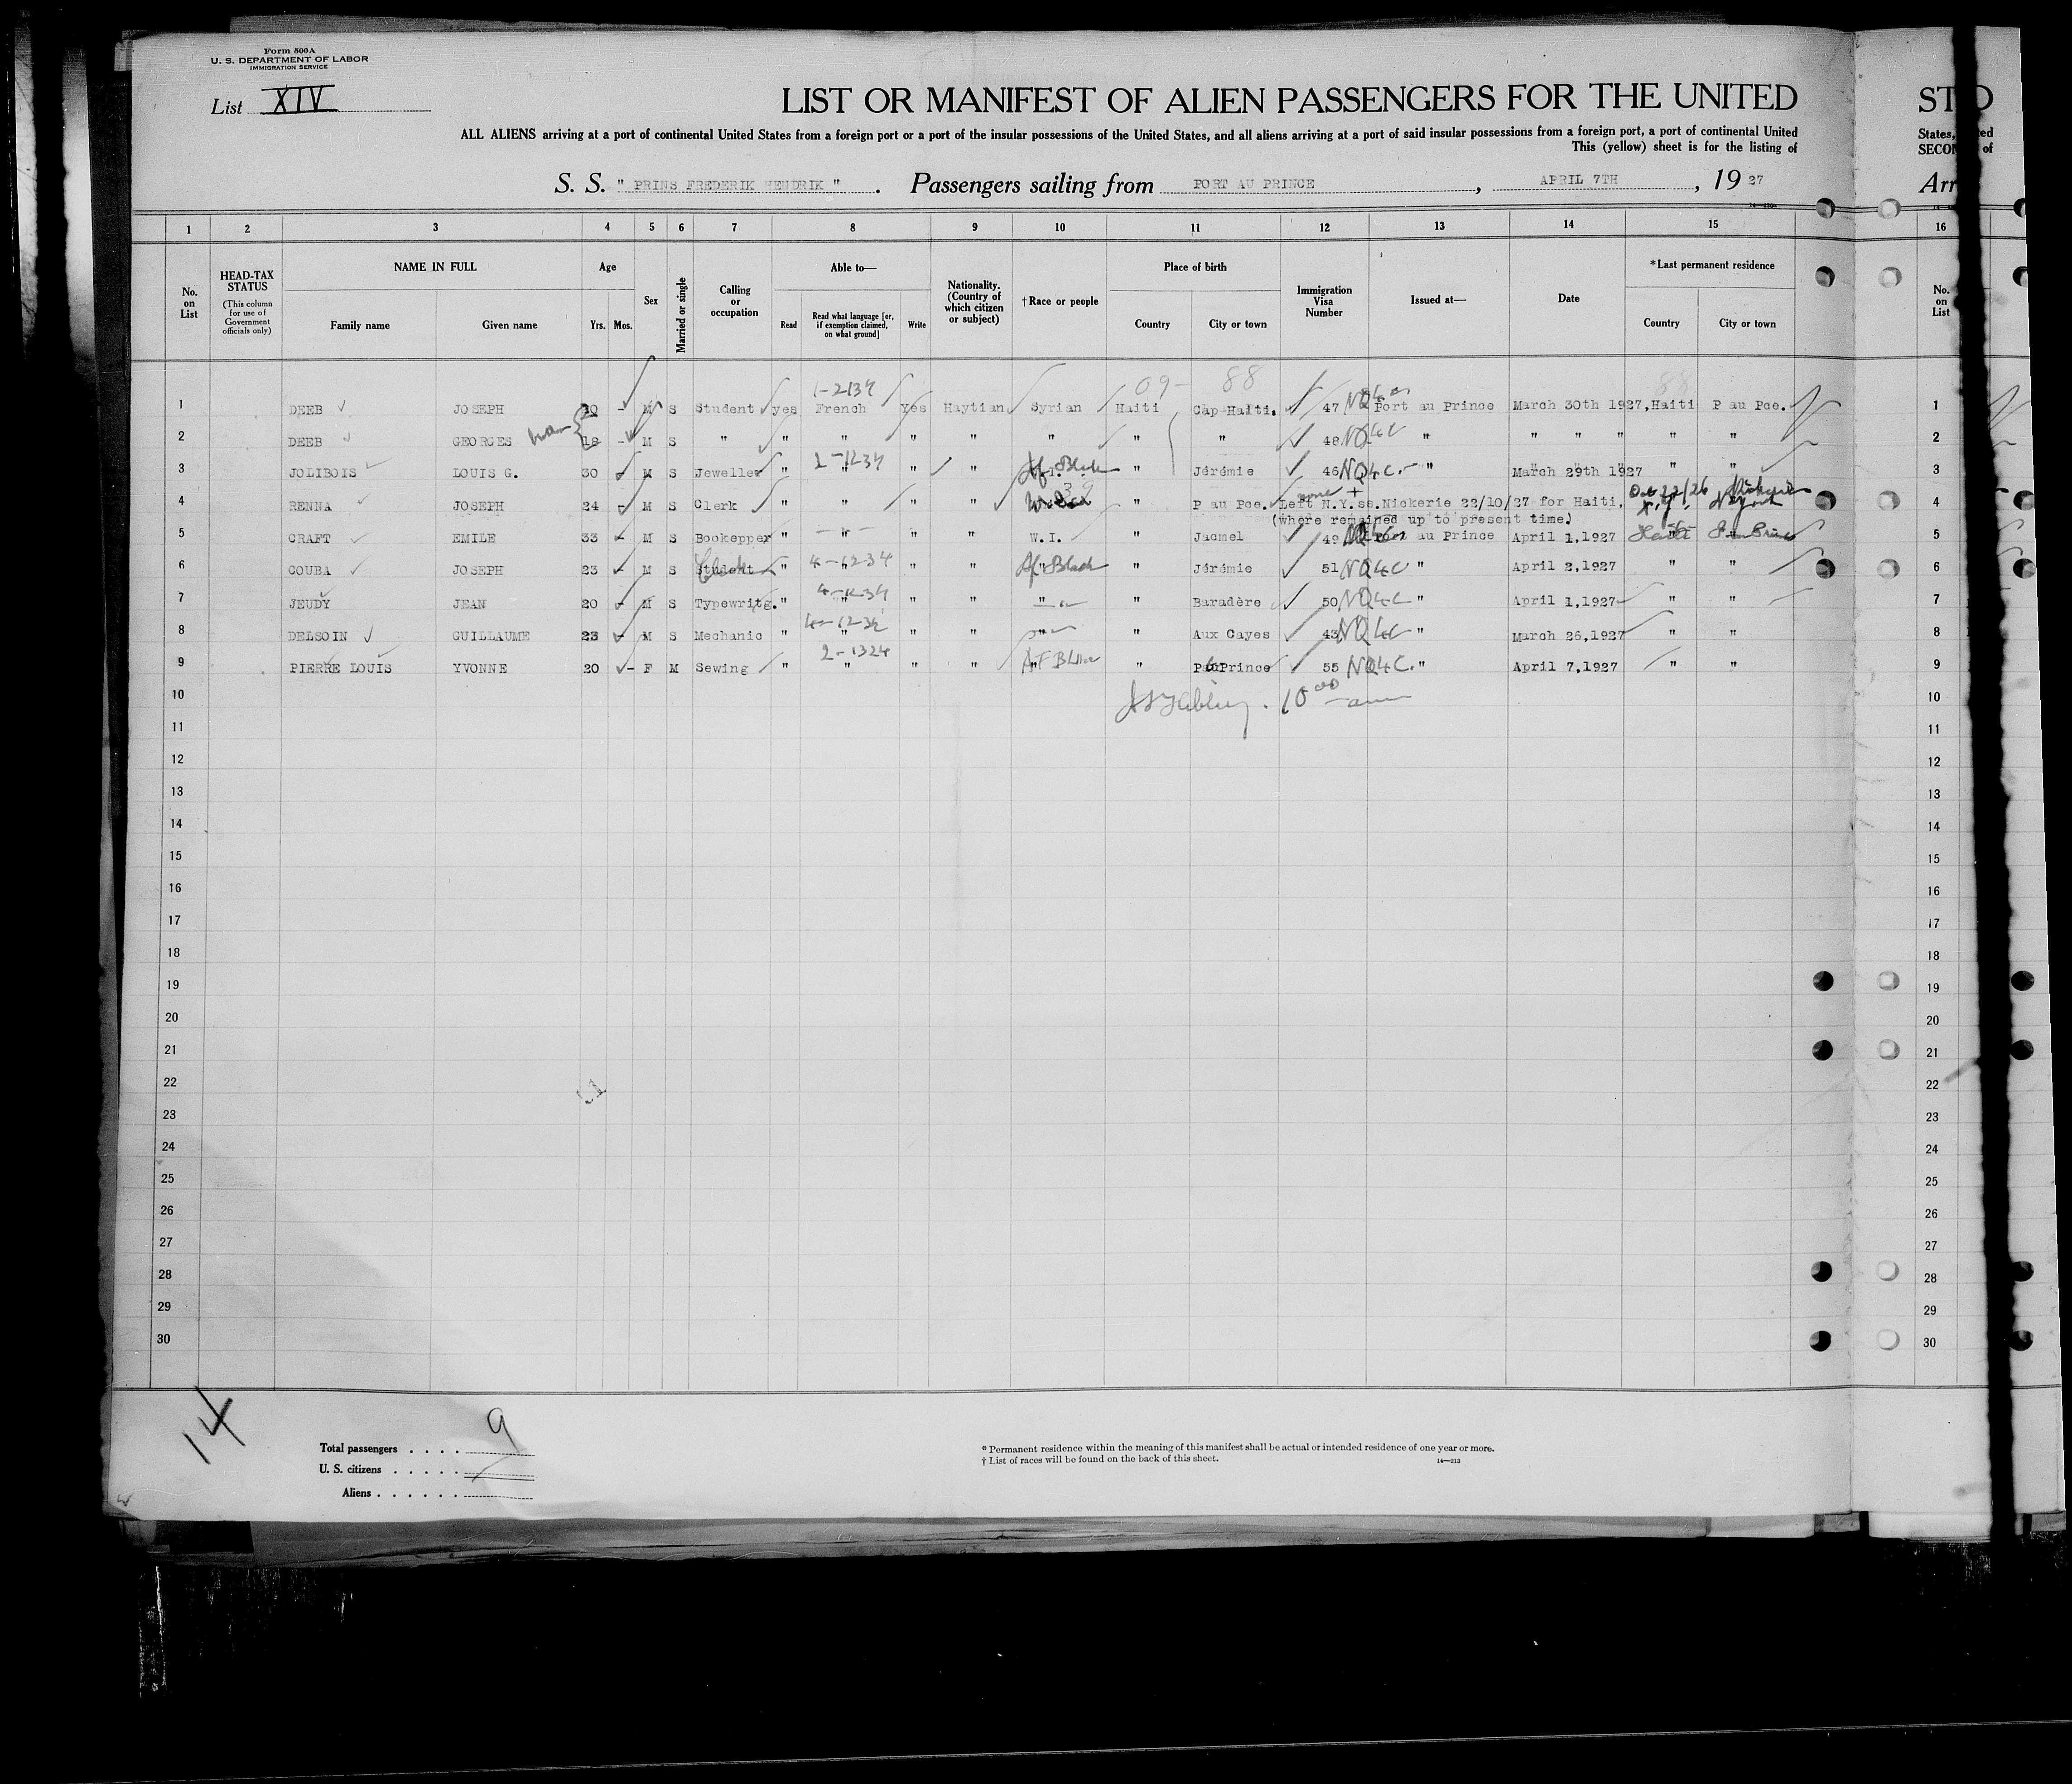 Form 500A
U. S. DEPARTMENT OF LABOR
IMMIGRATION SERVICE
List XIV
LIST OR MANIFEST OF ALIEN PASSENGERS FOR THE UNITED
ALL ALIENS arriving at a port of continental United States from a foreign port or a port of the insular possessions of the United States, and all aliens arriving at a port of said insular possessions from a foreign port, a port of continental United
This (yellow) sheet is for the listing of
S. S. " PRINS FREDERIK HENDRIK " . Passengers sailing from PORT AU PRINCE , APRIL 7TH , 19 27
ST
States,
SECON of
Arr
1 2 3 4 5 6 7 8 9 10 11 12 13 14 15 16
No. on List
HEAD-TAX STATUS
(This column for use of Government officials only)
NAME IN FULL
Family name Given name
Age
Yrs. Mos.
Sex
Married or single
Calling or occupation
Able to—
Read
Read what language [or, if exemption claimed, on what ground]
Write
Nationality. (Country of which citizen or subject)
†Race or people
Place of birth
Country City or town
Immigration Visa Number
Issued at—
Date
*Last permanent residence
Country City or town
No. on List
09- 88 88
1 DEEB JOSEPH 20 - M S Student yes French Yes Haytian Syrian Haiti Cap-Haiti. 47 NQ4c Port au Prince March 30th 1927, Haiti P au Pce. 1
2 DEEB GEORGES 18 - M S " " " " " " " " 48 NQ4c " " " " " " 2
3 JOLIBOIS LOUIS G. 30 - M S Jeweller " " " " Af. Black " Jérémie 46 NQ4c. " March 29th 1927 " " 3
4 RENNA JOSEPH 24 - M S Clerk " " " " " P au Pce. Left N.Y.ss.Nickerie 22/10/27 for Haiti, Oct 22/26 Nickerie N.Y. 4
(where remained up to present time)
5 CRAFT EMILE 33 - M S Bookepper " " " " W.I. " Jacmel 49 Port au Prince April 1,1927 Haiti 5
6 COUBA JOSEPH 23 - M S Student Clerk " " " " Af. Black " Jérémie 51 NQ4c " April 2,1927 " " 6
7 JEUDY JEAN 20 - M S Typewritg. " " " " " " Baradère 50 NQ4c " April 1,1927 " " 7
8 DELSOIN GUILLAUME 23 - M S Mechanic " " " " " " Aux Cayes 43 NQ4c " March 26,1927 " " 8
9 PIERRE LOUIS YVONNE 20 - F M Sewing " " " " AF Black " P au Prince 55 NQ4C. " April 7,1927 " " 9
10 10
11 11
12 12
13 13
14 14
15 15
16 16
17 17
18 18
19 19
20 20
21 21
22 22
23 23
24 24
25 25
26 26
27 27
28 28
29 29
30 30
14
Total passengers . . . . 9
U. S. citizens . . . . .
Aliens . . . . . .
* Permanent residence within the meaning of this manifest shall be actual or intended residence of one year or more.
† List of races will be found on the back of this sheet.
14—213